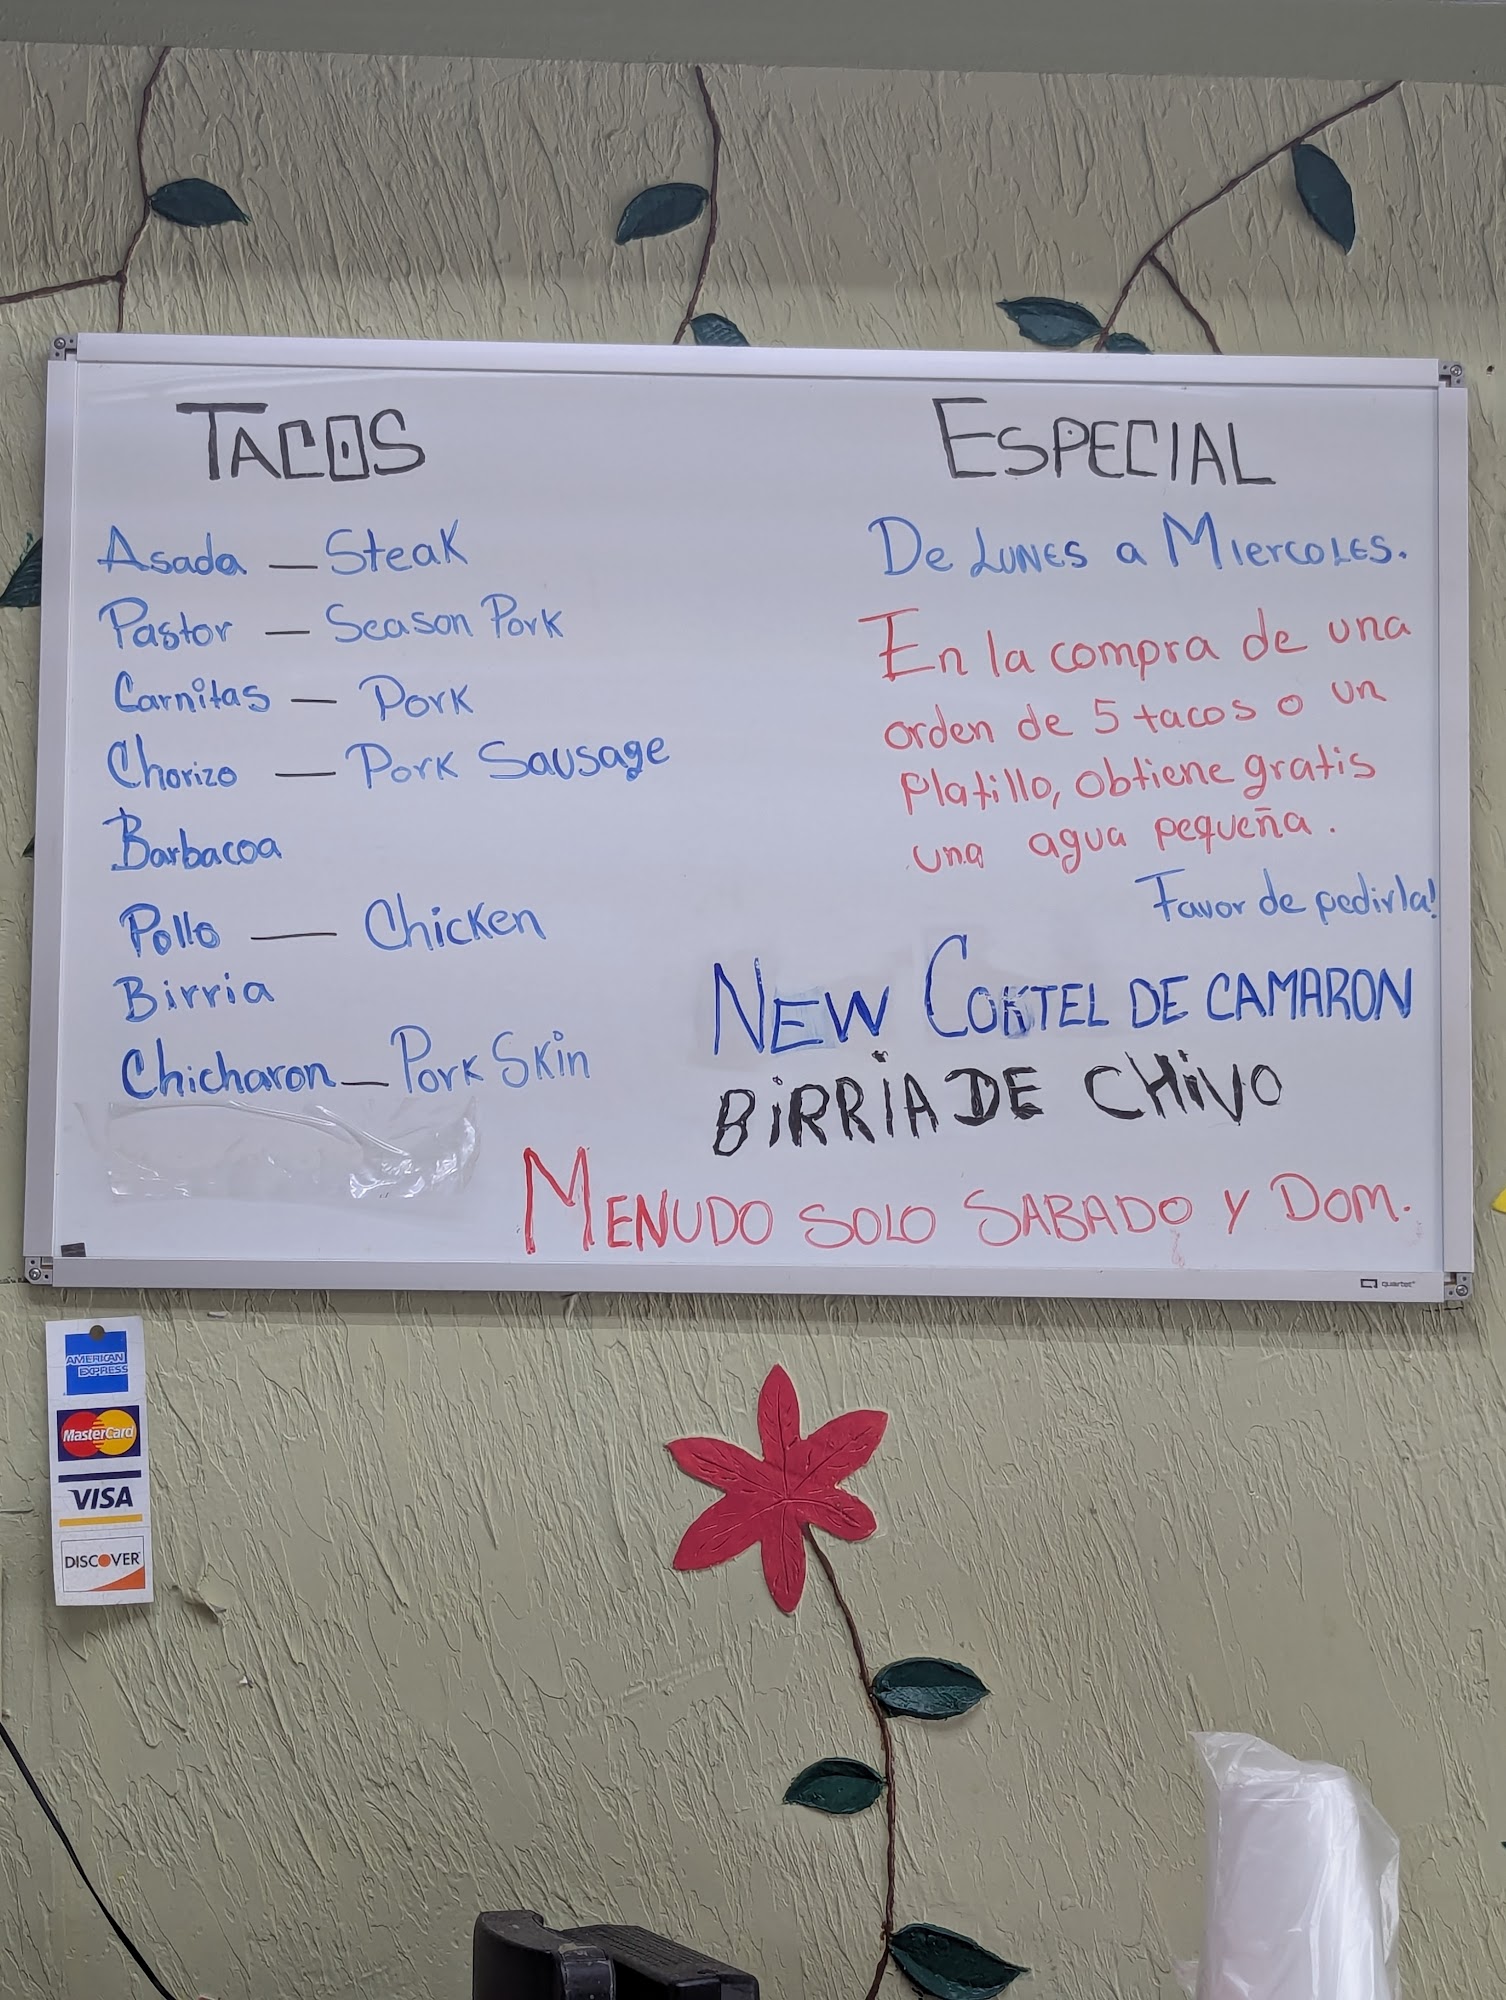 TACOS
Asada — Steak
Pastor — Season Pork
Carnitas — Pork
Chorizo — Pork Sausage
Barbacoa
Pollo — Chicken
Birria
Chicharon — Pork Skin
ESPECIAL
De LUNES a MIERCOLES.
En la compra de una
orden de 5 tacos o un
Platillo, obtiene gratis
una agua pequeña.
Favor de pedirla!
NEW COKTEL DE CAMARON
BIRRIA DE CHIVO
MENUDO SOLO SABADO Y DOM.
quartet
AMERICAN
EXPRESS
MasterCard
VISA
DISCOVER